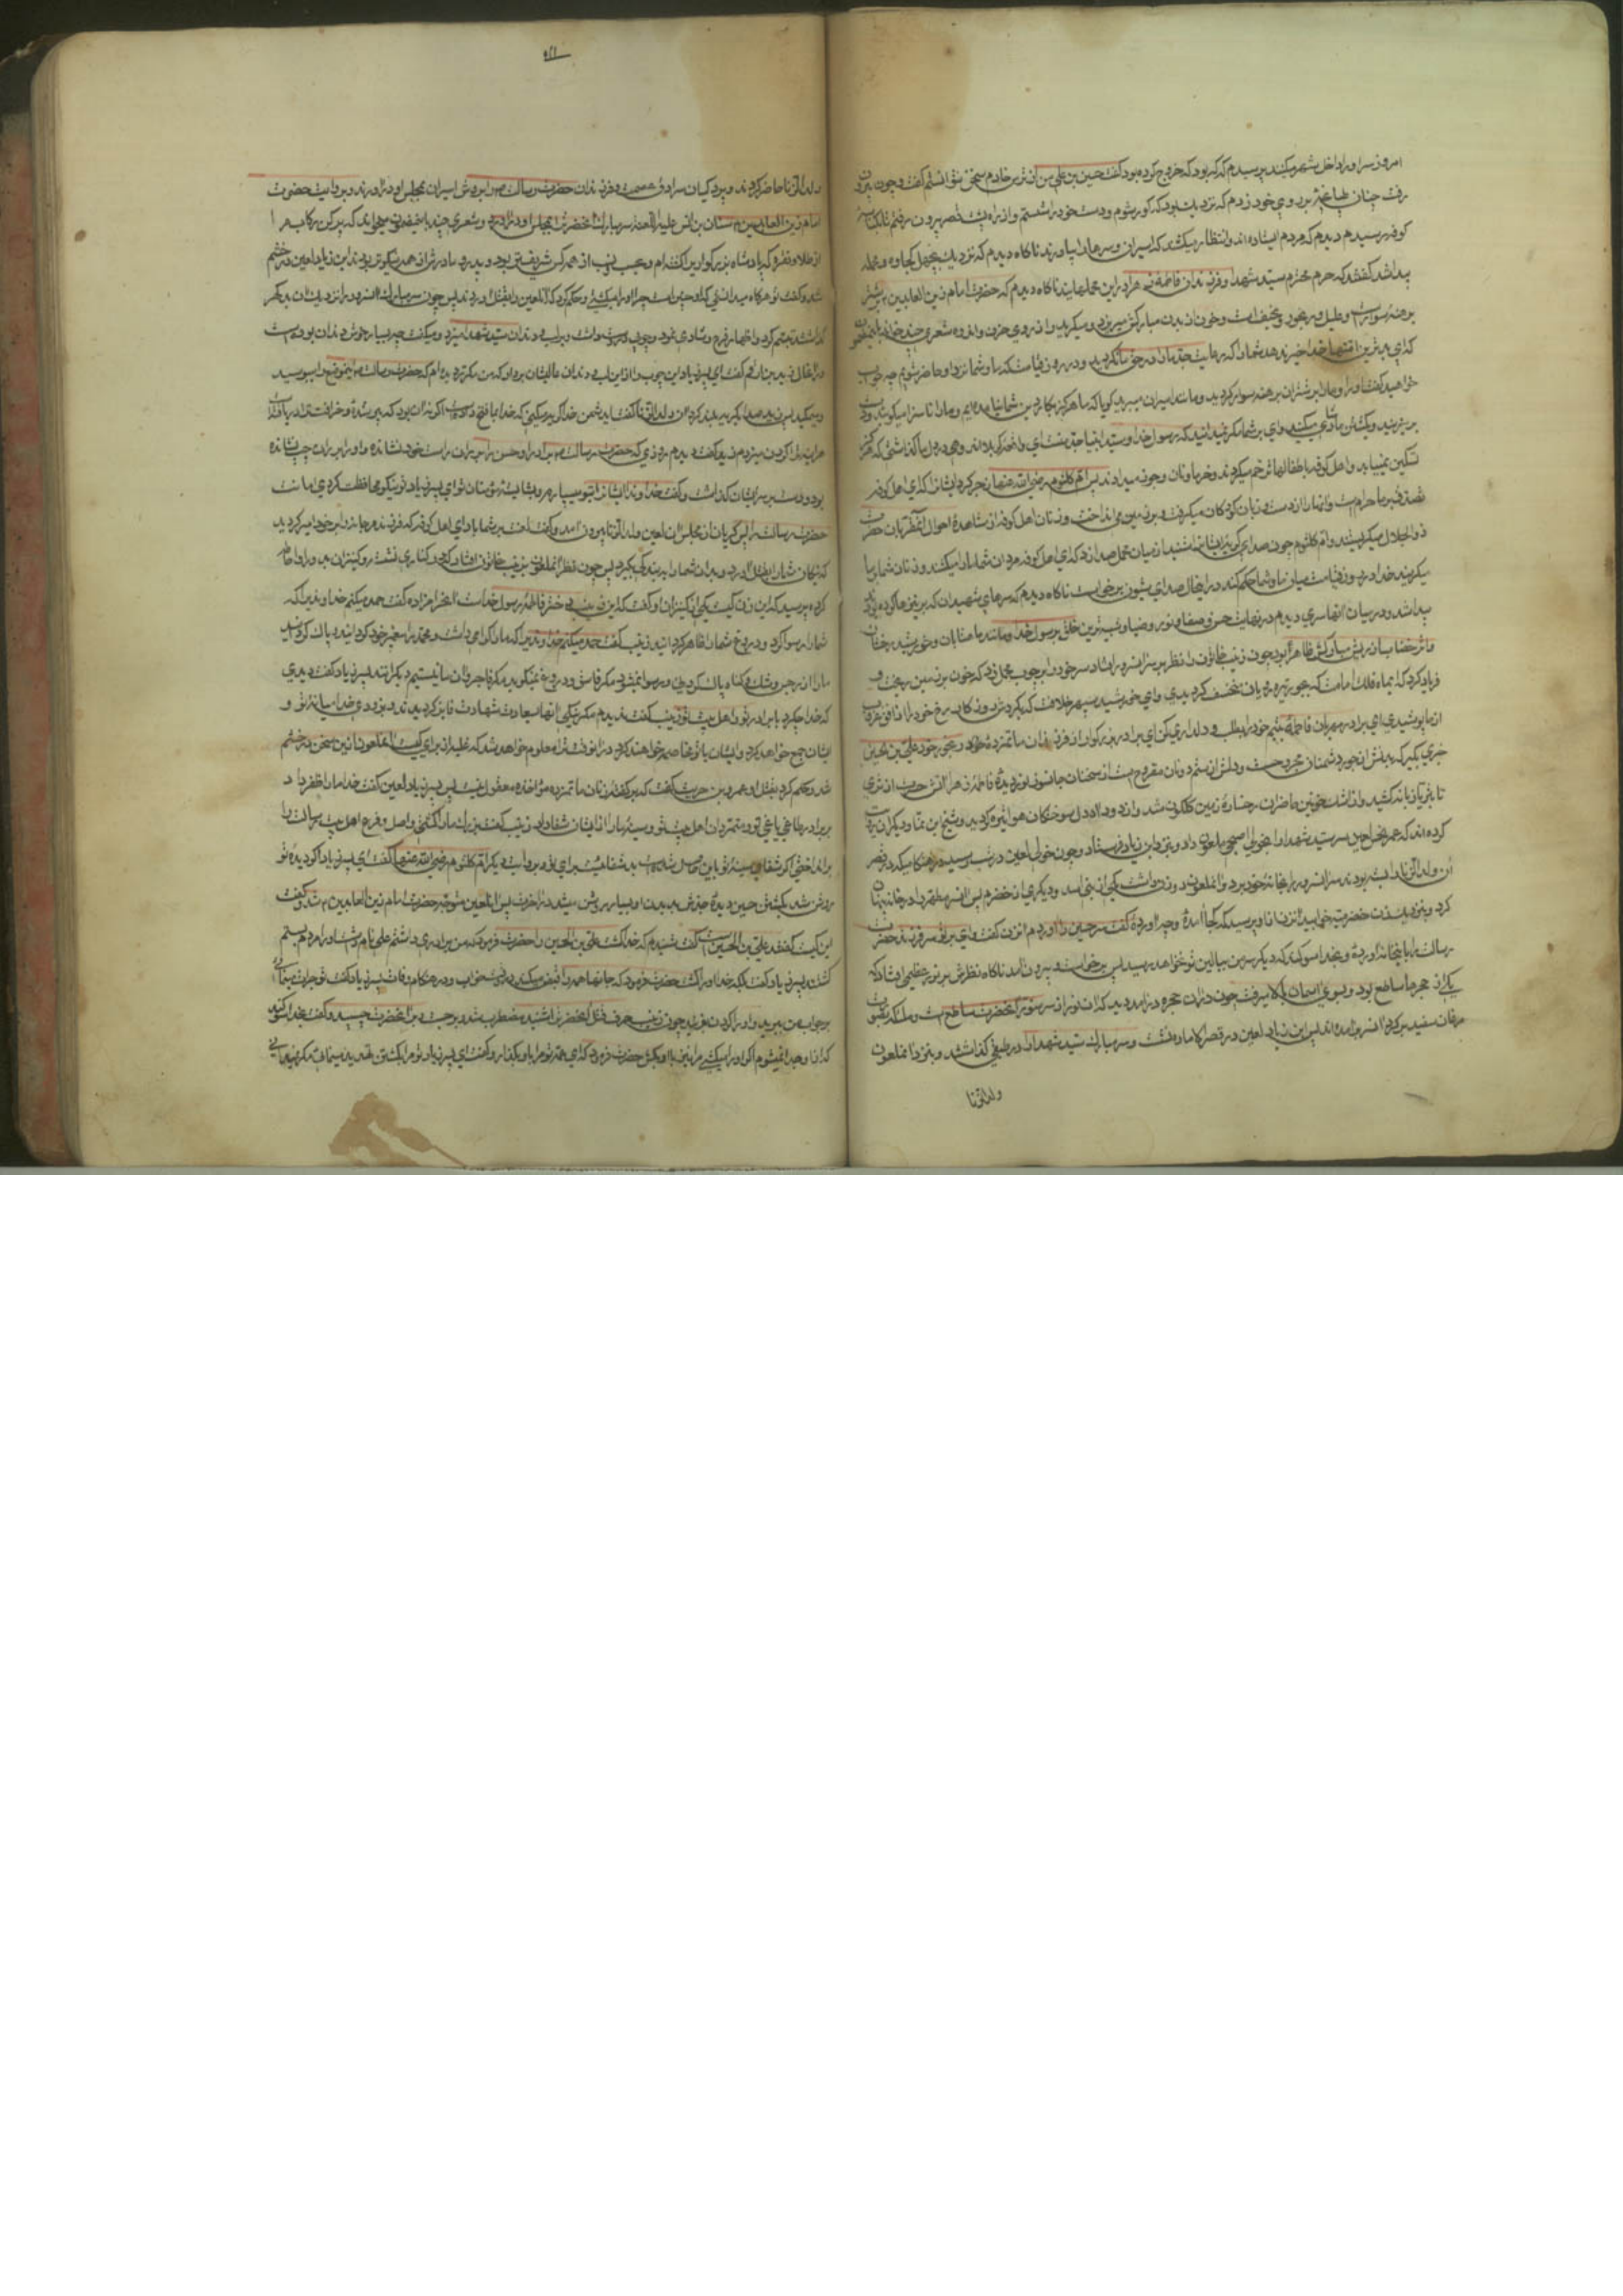 امروز سر او را داخل شهر میکنند پرسیدم که که بود که خروج کرده بود گفت حسین بن علی من از ترس خادم سخن نتوانستم گفت و چون بیرون
رفت چنان طپانچه بر روی خود زدم که نزدیک بود که کور شوم و دست خود را شستم و از راه پشت قصر بیرون رفتم تا بکناسه
کوفه رسیدم دیدم که مردم ایستاده اند و انتظار میکشند که اسیران و سرها را بیاورند ناکاه دیدم که نزدیک بچهل کجاوه و محمل
پیدا شد گفتند که حرم محترم سید شهدا و فرزندان فاطمه زهرا در این محملهایند ناکاه دیدم که حضرت امام زین العابدین بر شتر
برهنه سوار است و علیل و رنجور و نحیف است و خون از بدن مبارکش میریزد و میکرید و از روی حزن و اندوه شعری چند میخواند باین مضمون
که ای بدترین امتها خدا خیر ندهد شما را که رعایت جد ما را در حق ما نکردید و در روز قیامت که ما و شما نزد او حاضر شویم چه جواب
خواهید گفت ما را بر شتران برهنه سوار کردید و مانند اسیران میبرید کویا که ما هرکز بکار دین شما نیامده ایم و ما را ناسزا میکویید و دست
بر هم میزنید و بکشتن ما شادی میکنید وای بر شما مکر نمیدانید که رسول خدا و سید انبیا جد منست ای واقعه کربلا اندوهی در دل ما کذاشتی که هرکز
تسکین نمییابد و اهل کوفه باطفال ما ترحم میکردند و خرما و نان و جوز میدادند پس ام کلثوم رضی الله عنها زجر کرد ایشانرا که ای اهل کوفه
تصدق بر ما حرام است و آنها را از دست و دهان کودکان میکرفت و بر زمین می انداخت و زنان اهل کوفه از مشاهده احوال آن مقربان حضرت
ذو الجلال میکریستند و ام کلثوم چون صدای کریه ایشانرا شنید از میان محمل صدا زد که ای اهل کوفه مردان شما ما را میکشند و زنان شما بر ما
میکریند خدا در روز قیامت میان ما و شما حکم کند در این حال صدای شیون برخاست ناکاه دیدم که سرهای شهیدان که بر نیزها کرده بودند
پیدا شد و در میان آنها سری دیدم در نهایت حسن و صفا و نور و ضیا و شبیه ترین خلق برسول خدا و مانند ماه تابان و خورشید درخشان
و اثر خضاب از ریش مبارکش ظاهر بود چون زینب خاتون را نظر بر سر آن سرور افتاد سر خود را بر چوب محمل زد که خون بر زمین ریخت و
فریاد کرد که ای ماه فلک امامت که بجور تیره رویان منخسف کردیدی و ای خورشید سپهر خلافت که
از ما پوشیدی ای برادر مهربان فاطمه یتیم خود را بطلب و دلداری کن ای برادر بزرکوار از فرزندان ماتمزده خود و رنجور خود علی بن الحسین
خبری بکیر که بدنش از جور دشمنان مجروحست و دلش از ستم دونان مقروح است از سخنان جانسوز نور دیده فاطمه زهرا آتش حسرت از ثری
تا بثریا زبانه کشید و از اشک خونین حاضران رخساره زمین کلکون شد و از دود دل سوختکان هوا تیره کردید و شیخ ابن نما و دیکران روایت
کرده اند که عمر نحس سر سید شهدا را بخولی اصبحی ملعون داد و بنزد ابن زیاد فرستاد و چون خولی لعین در شب رسید و هنکامیکه در قصر
آن ولد الزنا را بسته بودند سر آن سرور را بخانه خود برد و آن ملعون دو زن داشت یکی از بنی اسد و دیکری از حضرم پس آن سر مطهر را در خانه پنهان
کرد و بنزدیک زن حضرمیه خوابید آن زن از او پرسید که کجا آمدی و چه آوردهٔ گفت سر حسین را آوردم آن زن گفت وای بر تو سر فرزند حضرت
رسالت را باینخانه آوردهٔ و بخدا سوکند که دیکر سر من ببالین تو نخواهد رسید پس برخاست و بیرون آمد ناکاه نظرش بر نور عظیمی افتاد که
یکی از حجرها ساطع بود و بسوی آسمان بالا میرفت چون در آن حجره درآمد دید که آن نور از سر منور آنحضرت ساطع است و ملائکه بصورت
مرغان سفید بر کرد آن سر برآمده اند پس ابن زیاد لعین در قصر الاماره نشست و سر مبارک سید شهدا را در طبقی کذاشتند و بنزد آن ملعون
ولد الزنا
ولد الزنا حاضر کردند و پردکیان سرادق عصمت و فرزندان حضرت رسالت را بروش اسیران بمجلس او درآوردند و بروایت حضرت
امام زین العابدین سنان بن انس علیه اللعنه سر مبارک آنحضرت را بمجلس او درآورد و شعری چند باینمضمون میخواند که پر کن رکاب مرا
از طلا و نقره که پادشاه بزرکوار را کشته ام و بحسب و نسب از همه کس شریفتر بود و پدر و مادرش از همه نیکوتر بودند ابن زیاد لعین در خشم
شد و گفت تو هرکاه میدانستی که او چنین است چرا او را کشتی و حکم کرد که آن لعین را بقتل آوردند پس چون سر مبارک آن سرور را نزدیک آن بدکهر
کذاشتند تبسم کرد و اظهار فرح و شادی نمود و چوبی در دست داشت و بر لب و دندان سید شهدا میزد و میکفت چه بسیار خوش دندان بوده است
در آنحال زید بن ارقم گفت ای پسر زیاد این چوب را از این لب و دندان عالیشان بردار که من مکرر دیده ام که حضرت رسالت اینموضع را میبوسید
و میمکید پس زید صدا بکریه بلند کرد آن ولد الزنا گفت ای دشمن خدا کریه میکنی که خدا ما را فتح داده است اکر نه آن بود که پیر شدهٔ و خرافت ترا دریافته
هر آینه ترا کردن میزدم زید گفت دیدم روزی که حضرت رسالت برادر او حسن را بر ران راست خود نشانده و او را بر ران چپ نشانده
بود و دست بر سر ایشان کذاشت و گفت خداوندا ایشانرا بتو میسپارم و بشایسته مؤمنان تو ای پسر زیاد تو نیکو محافظت کردی امانت
حضرت رسالت را پس کریان از مجلس آن لعین ولد الزنا بیرون آمد و گفت لعنت بر شما باد ای اهل کوفه که فرزند مرجانه را بر خود امیر کردید
که نیکان شما را بقتل آورد و بدان شما را ببندکی بکیرد پس چون نظر آنملعون بزینب خاتون افتاد که در کناری نشسته و کنیزان بدور او احاطه
کرده پرسید که این زن کیست یکی از کنیزان او گفت که زینب دختر فاطمه رسول خداست آن حرامزاده گفت حمد میکنم خداوندیرا که
شما را رسوا کرد و دروغ شما را ظاهر کردانید زینب گفت حمد میکنم خداوندیرا که ما را کرامی داشت و بمحمد پیغمبر خود کردانید و پاک کردانید
ما را از رجس و شک و کناه پاک کردنی و رسوا نمیشود مکر فاسق و دروغ نمیکوید مکر فاجر و آن ما نیستیم دیکرانند پسر زیاد گفت دیدی
که خدا چه کرد با برادر تو و اهل بیت تو زینب گفت ندیدم مکر نیکی آنها بسعادت شهادت فایز کردیدند و بزودی خدا میانه تو و
ایشان جمع خواهد کرد و ایشان با تو مخاصمه خواهند کرد در آنوقت ترا معلوم خواهد شد که غلبه از برای کیست آنملعون از این سخن در خشم
شد و حکم کرد بقتل او عمرو بن حریث گفت که بر گفته زنان ماتمزده مؤاخذه معقول نیست پس پسر زیاد لعین گفت خدا ما را ظفر داد
بر برادر طاغی یاغی تو و متمردان اهل بیت تو و سینه ما را از ایشان شفا داد زینب گفت بزرک ما را کشتی و اصل و فرع اهل بیت رسالت را
برانداختی اکر شفای سینه تو باین حاصل شده است بد شفائیست برای تو و بروایت دیکر ام کلثوم رضی الله عنها گفت ای پسر زیاد اکر دیدهٔ تو
روشن شد بکشتن حسین دیدهٔ جدش بدیدن او بسیار روشن میشد در آخرت پس آنلعین متوجه حضرت امام زین العابدین شد و گفت
این کیست گفتند علی بن الحسین است گفت شنیدم که خدا کشت علی بن الحسین را حضرت فرمود که من برادری داشتم علی نام او را مردم بستم
کشتند پسر زیاد گفت بلکه خدا او را کشت حضرت فرمود که جانها همه را خدا قبض میکند در وقت خواب و در هنکام وفات پسر زیاد گفت تو جرأت مینمائی
بر جواب من ببرید و او را کردن بزنید چون زینب حرف قتل آنحضرت را شنید مضطرب شد و برجست و بر آنحضرت چسبید و گفت بخدا سوکند
که از او جدا نمیشوم اکر او را میکشی مرا نیز با او بکش حضرت فرمود که ای عمه تو مرا با او بکذار و گفت ای پسر زیاد تو مرا بکشتن تهدید مینمائی مکر نمیدانی